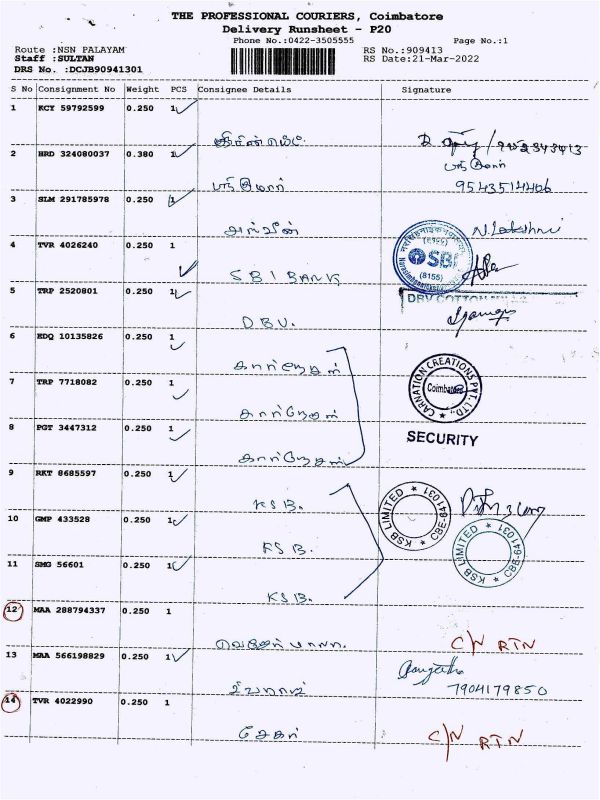 THE PROFESSIONAL COURIERS, Coimbatore
Delivery Runsheet - P20
Phone No.:0422-3505555 Page No.:1
Route :NSN PALAYAM RS No.:909413
Staff :SULTAN RS Date:21-Mar-2022
DRS No. :DCJB90941301
S No Consignment No Weight PCS Consignee Details Signature
1 KCY 59792599 0.250 1
2 HRD 324080037 0.380 1
9543514406
3 SLM 291785978 0.250 1
அஸ்வின் N. Lakshmi
4 TVR 4026240 0.250 1
SBI
(8155)
SBI BANK
5 TRP 2520801 0.250 1
DBV COTTON
DBV.
6 EDQ 10135826 0.250 1
7 TRP 7718082 0.250 1
CARNATION CREATIONS PVT. LTD.,
Coimbatore
8 PGT 3447312 0.250 1
SECURITY
9 RKT 8685597 0.250 1
KSB.
10 GMP 433528 0.250 1
KSB LIMITED ★ CBE-641 031 ★
KSB.
KSB LIMITED ★ CBE-641 031 ★
11 SMG 56601 0.250 1
KSB.
12 MAA 288794337 0.250 1
C/N RTN
13 MAA 566198829 0.250 1
Sangeetha
7904179850
14 TVR 4022990 0.250 1
சேகர் C/N RTN